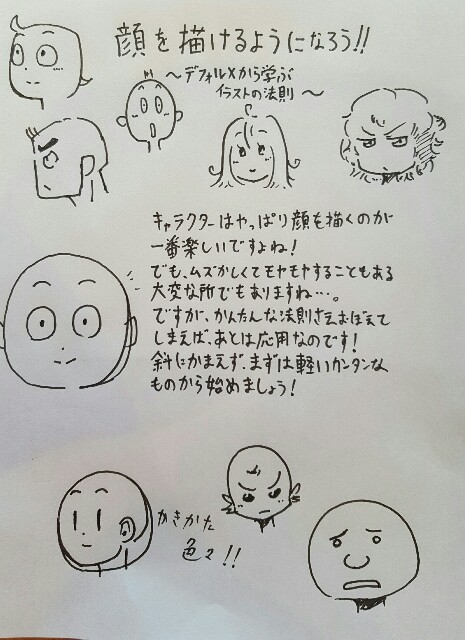 顔を描けるようになろう!!
〜デフォルメから学ぶ
イラストの法則〜
キャラクターはやっぱり顔を描くのが
一番楽しいですよね!
でも、ムズかしくてモヤモヤすることもある
大変な所でもありますね…。
ですが、かんたんな法則さえおぼえて
しまえば、あとは応用なのです!
斜にかまえず、まずは軽いカンタンな
ものから始めましょう!
かきかた
色々!!